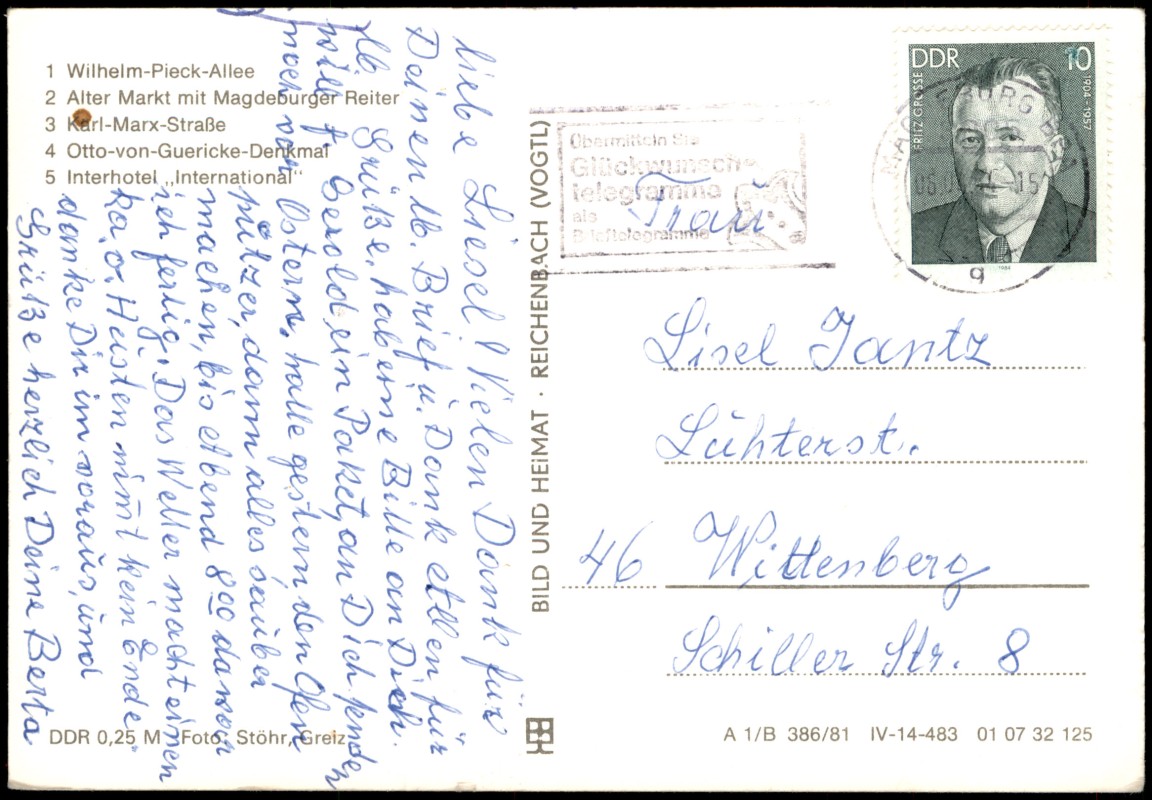 1 Wilhelm-Pieck-Allee
2 Alter Markt mit Magdeburger Reiter
3 Karl-Marx-Straße
4 Otto-von-Guericke-Denkmal
5 Interhotel „International"
liebe Liesel! Vielen Dank für
Deinen lb. Brief u. Dank allen für
lb Grüße, habe eine Bitte an Dich.
will f. Gerold, ein Paket, an Dich senden
noch vor Ostern, hatte gestern, den Ofen
mützer, dann alles sauber
machen, bis Abend 8oo davon
ich fertig. Das Wetter macht einen
ka, o. Husten nimt kein Ende.
danke Dir im voraus, und
Grüße herzlich Deine Berta
DDR 0,25 M Foto: Stöhr, Greiz
BILD UND HEIMAT · REICHENBACH (VOGTL)
Übermitteln Sie
Glückwunsch-
telegramme
als
Brieftelegramme
DDR 10
FRITZ GROSSE
1904-1957
1984
MAGDEBURG
g
Frau
Lisel Jantz
Lühterst.
46 Wittenberg
Schiller Str. 8
A 1/B 386/81 IV-14-483 01 07 32 125